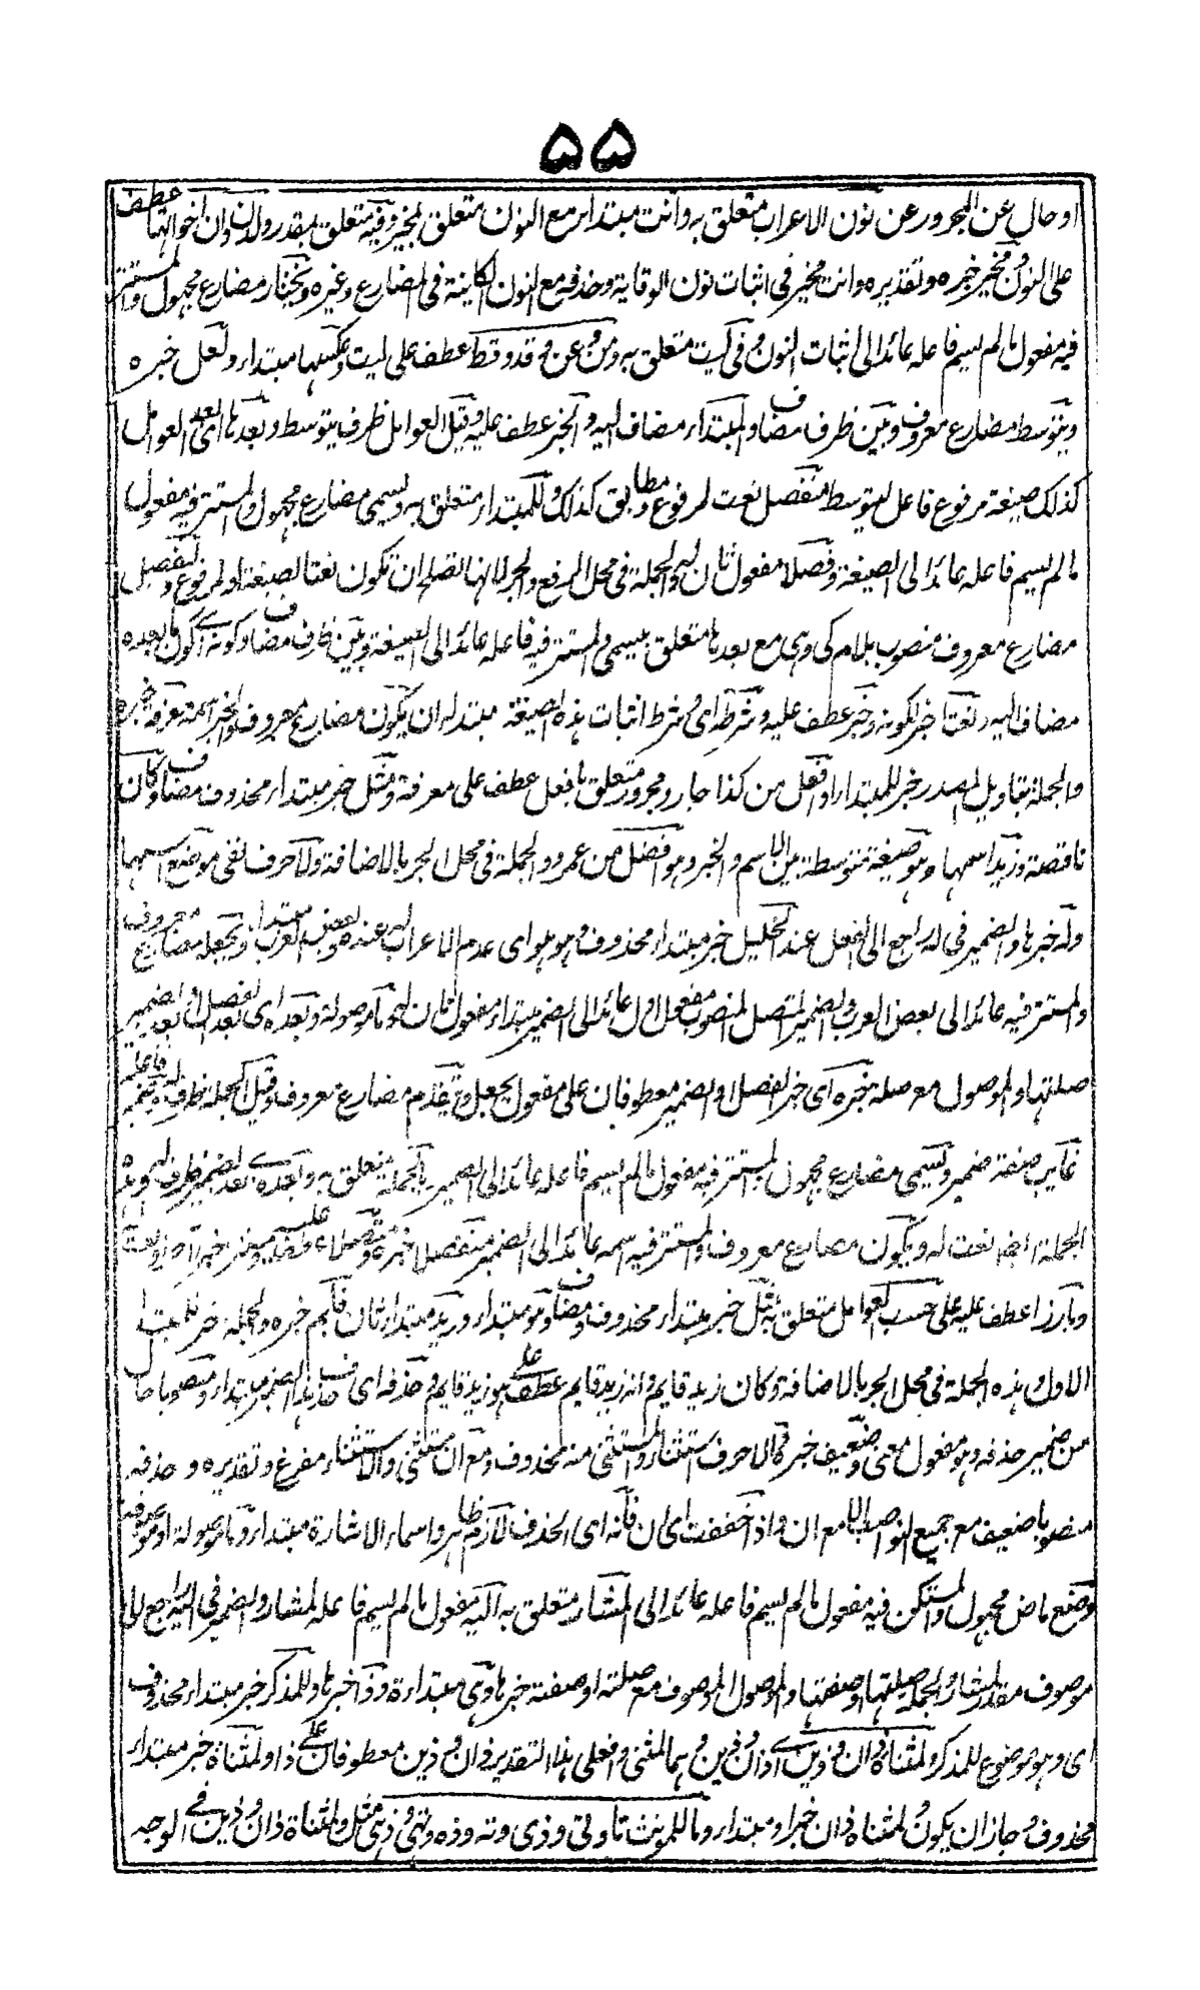 ۵۵
او حال عن المجرور عن نون الاعراب متعلق به وانت مبتداء مع النون متعلق المخير وفيه متعلق بمقدر ولدن وان اخواتها عطف
على النون ومخير خبره وتقديره وانت مخير فى اثبات نون الوقاية وحذفه مع النون الكاينة فى المضارع وغيره ويختار مضارع مجهول والمستتر
فيه مفعول مالم يسم فاعله عائد الى اثبات النون وفى ليت متعلق به ومن وعن وقد وقط عطف على ليت وعكسها مبتداء ولعل خبره
ويتوسط مضارع معروف وبين ظرف مضاف والمبتداء مضاف اليه والخبر عطف عليه وقبل العوامل ظرف يتوسط وبعدها اى بعد العوامل
كذلك صيغة مرفوع فاعل يتوسط منفصل نعت لمرفوع ومطابق كذلك وللمبتداء متعلق به ويسمى مضارع مجهول والمستتر فيه مفعول
مالم يسم فاعله عائد الى الصيغة وفصلا مفعول ثان له والجملة فى محل الرفع والجر لانها تصلح ان تكون نعتا لصيغة او لمرفوع وليفصل
مضارع معروف منصوب بلام كى وهى مع بعدها متعلق بيسمى والمستتر فيه فاعله عائد الى الصيغة وبين ظرف مضاف وكونه اى كون ما بعده
مضاف اليه ونعتا خبر لكونه وخبر عطف عليه وشرطه اى وشرط اثبات هذه الصيغة مبتداء ان يكون مضارع معروف والخبر اسمه معرفة خبره
والجملة بتاويل المصدر خبر للمبتداء او افعل من كذا جار ومجرور متعلق بافعل عطف على معرفة ومثل خبر مبتداء محذوف مضاف وكان
ناقصة وزيد اسمها وهو صيغة متوسطة بين الاسم والخبر وهو افضل من عمرو والجملة فى محل الجر بالاضافة ولا حرف نفى موضع اسمها
وله خبرها والضمير فى له راجع الى الفصل عند الخليل خبر مبتداء محذوف وهو هو اى عدم الاعراب له عنده وبعض العرب مبتداء ويجعله مضارع معروف
والمستتر فيه عائد الى بعض العرب والضمير المتصل المنصوب مفعول اول عائد الى الضمير مبتداء مفعول ثان له وما موصولة وبعده اى بعد الفصل او بعد الضمير
صلتها والموصول مع صلته خبره اى خبر الفصل او الضمير معطوفان على مفعول يجعل ويتقدم مضارع معروف وقبل الجملة ظرف له وضمير فاعله
غايب صفة ضمير ويسمى مضارع مجهول المستتر فيه مفعول مالم يسم فاعله عائد الى الضمير بالجملة متعلق به وبعده اى بعد الضمير ظرف
الجملة ايضا نعت له ويكون مضارع معروف والمستتر فيه اسمه عائد الى الضمير منفصلا خبره ومتصلا عليه
وبارزا عطف عليه على حسب العوامل متعلق به مثل خبر مبتداء محذوف ومضاف وهو مبتداء وزيد مبتداء ثان قايم خبره والجملة خبر للمبتداء
الاول وهذه الجملة فى محل الجر بالاضافة وكان زيد قايم وانه زيد قايم عطف على هو زيد قايم وحذفه اى حذف هذا الضمير مبتداء ومنصوبا حال
من ضمير حذفه وهو مفعول معنى وضعيف خبره الا حرف استثناء والمستثنى منه محذوف ومع ان مستثنى والاستثناء مفرغ وتقديره وحذفه
منصوبا ضعيف مع جميع النواصب الا مع ان واذا خففت اى ان فانه اى الحذف لازم ظاهر واسماء الاشارة مبتداء وما موصولة او موصوفة
ووضع ماض مجهول والمستكن فيه مفعول مالم يسم فاعله عائد الى المشار متعلق به اليه مفعول مالم يسم فاعله لمشار والضمير فى اليه راجع الى
موصوف مقدر لمشار والجملة صلتها او صفتها والموصول او الموصوف مع صلته او صفته خبرها وهى مبتداءة وذا خبرها وللمذكر خبر مبتداء محذوف
اى وهو موضوع للمذكر ولمثناه ذان وذين اى وذان وذين وهما المثنى وفعلى هذا التقدير ذان وذين معطوفان على ذا ولمثناة خبر مبتداء
محذوف وجاز ان يكون لمثناه ذان خبرا ومبتداء وما للمونث تا وتى وذى وته وذه وتهى وذهى مثل ولمثناة ذان وذين فى الوجه